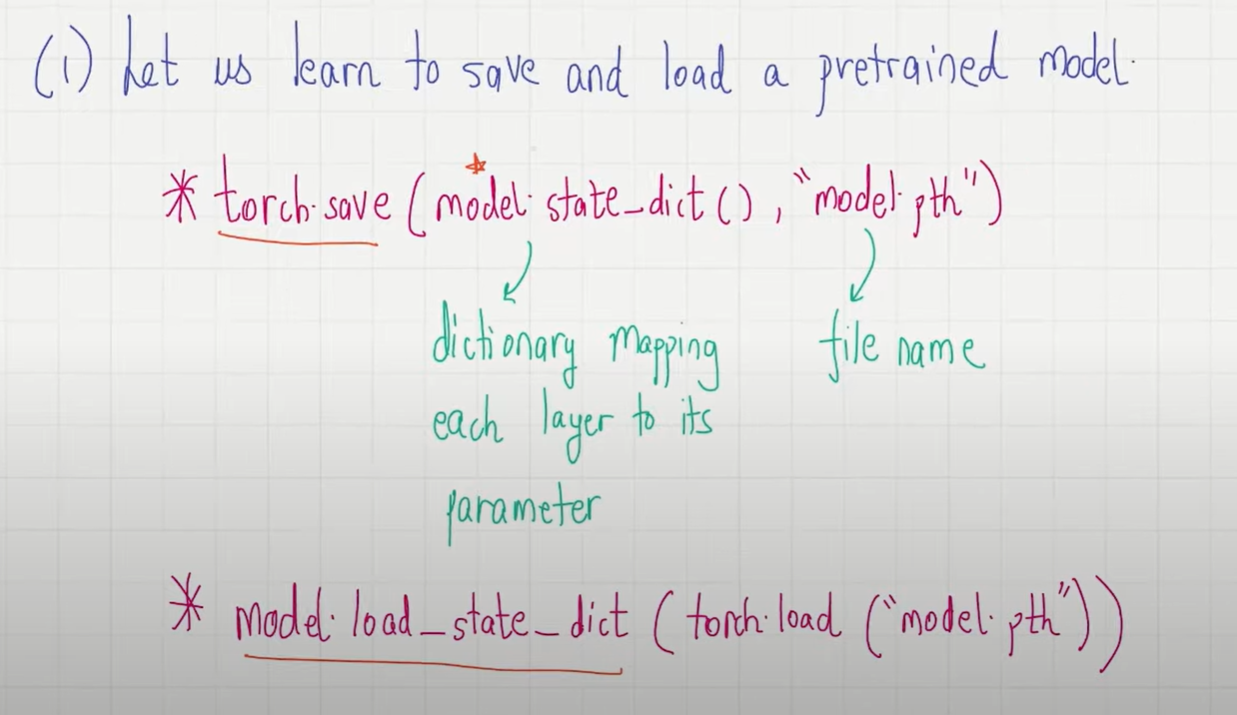 (1) Let us learn to save and load a pretrained model.
* torch.save (model.state_dict(), "model.pth")
dictionary mapping file name
each layer to its
parameter
* model.load_state_dict (torch.load ("model.pth"))